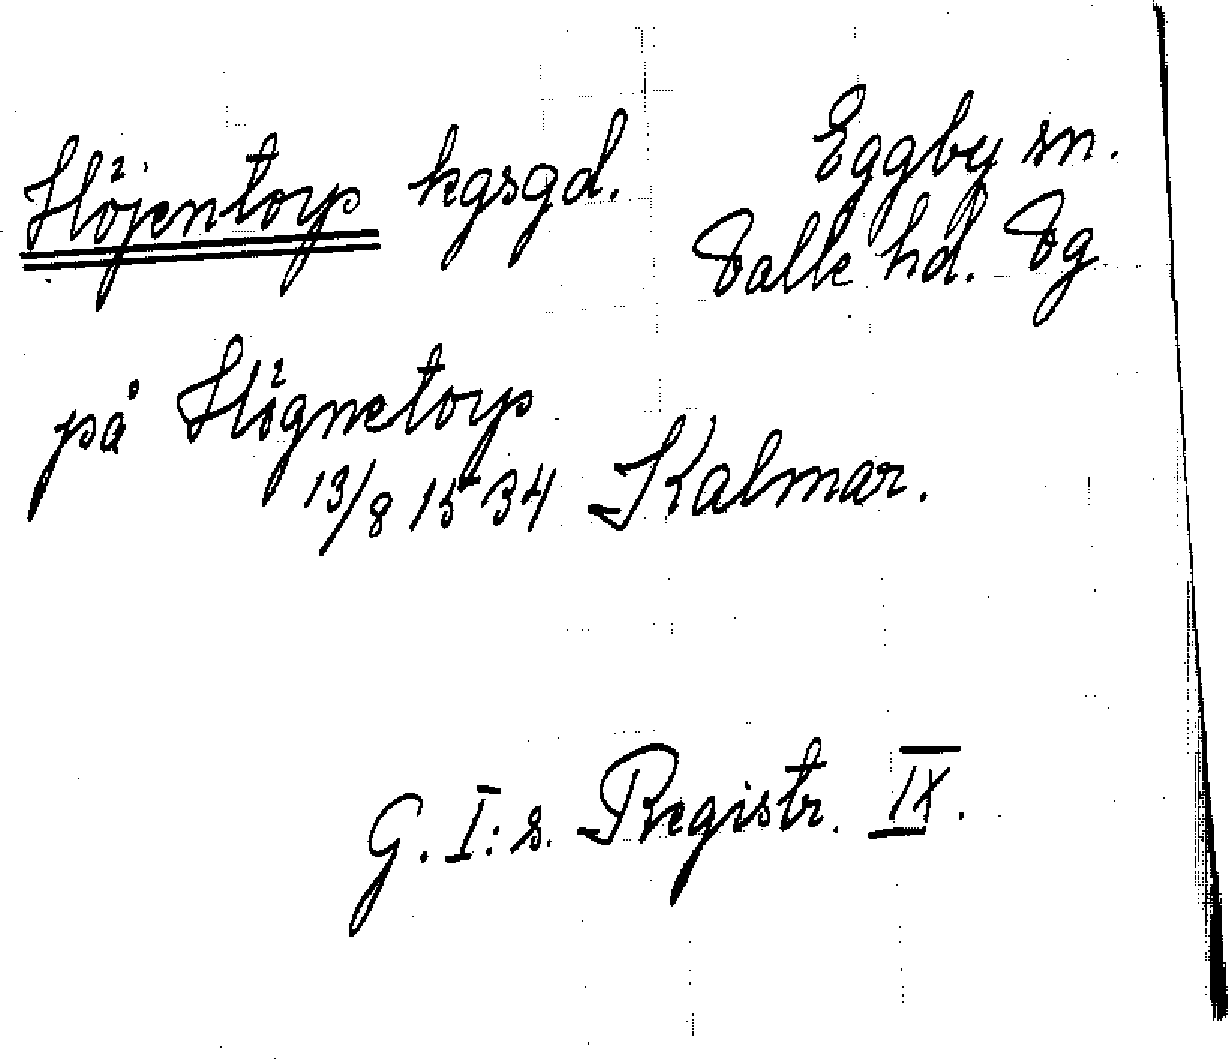 Höjentorp kgsgd. Eggby sn.
Valle hd. Vg
på Högnetorp
13/8 1534 Kalmar.
G. I:s. Registr. IX.